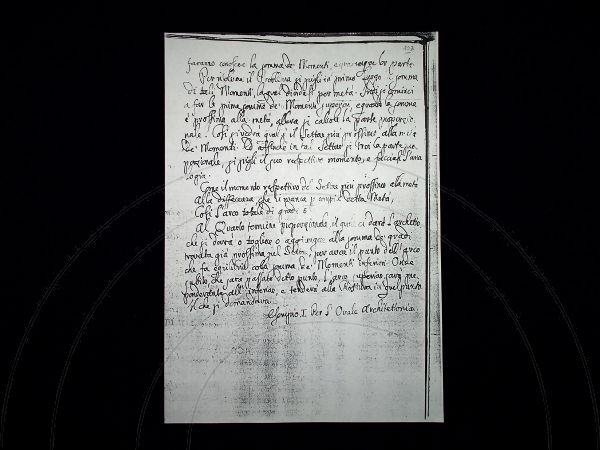 faranno conoscer la somma de Momenti, e qua
Per risolver il Problema si pigli in primo luogo la somma
di tali Momenti, la qual dividesi per metà. Indi si cominci
a far la prima somma de' Momenti superiori, e quando la somma
è prossima alla metà, allora si calcoli la parte proporzio-
nale. Così si vedrà qual è il Settor più prossimo alla metà
de' Momenti. Ed affinché in tal Settor si trovi la parte pro-
porzionale, si pigli il suo respettivo momento, e facciasi l'ana-
logia.
Come il momento respettivo del Settor più prossimo alla metà
Alla differenza che vi manca per compir detta Metà,
Così l'arco totale di gradi 5
Al Quarto termine proporzionale, il qual ci darà l'archetto,
che si dovrà o togliere o aggiungere alla somma de' gradi
trovata già prossima nel Settor, per aver il punto dell'arco
che fa equilibrio colla somma de' Momenti inferiori. Onde
subito che sarà passato detto punto, l'arco superior sarà pre
ponderante all' inferior, e tenderà alla Rovina in quel punto
il che si domandava.
Esempio I. Per l'Ovale Architettonia.
107